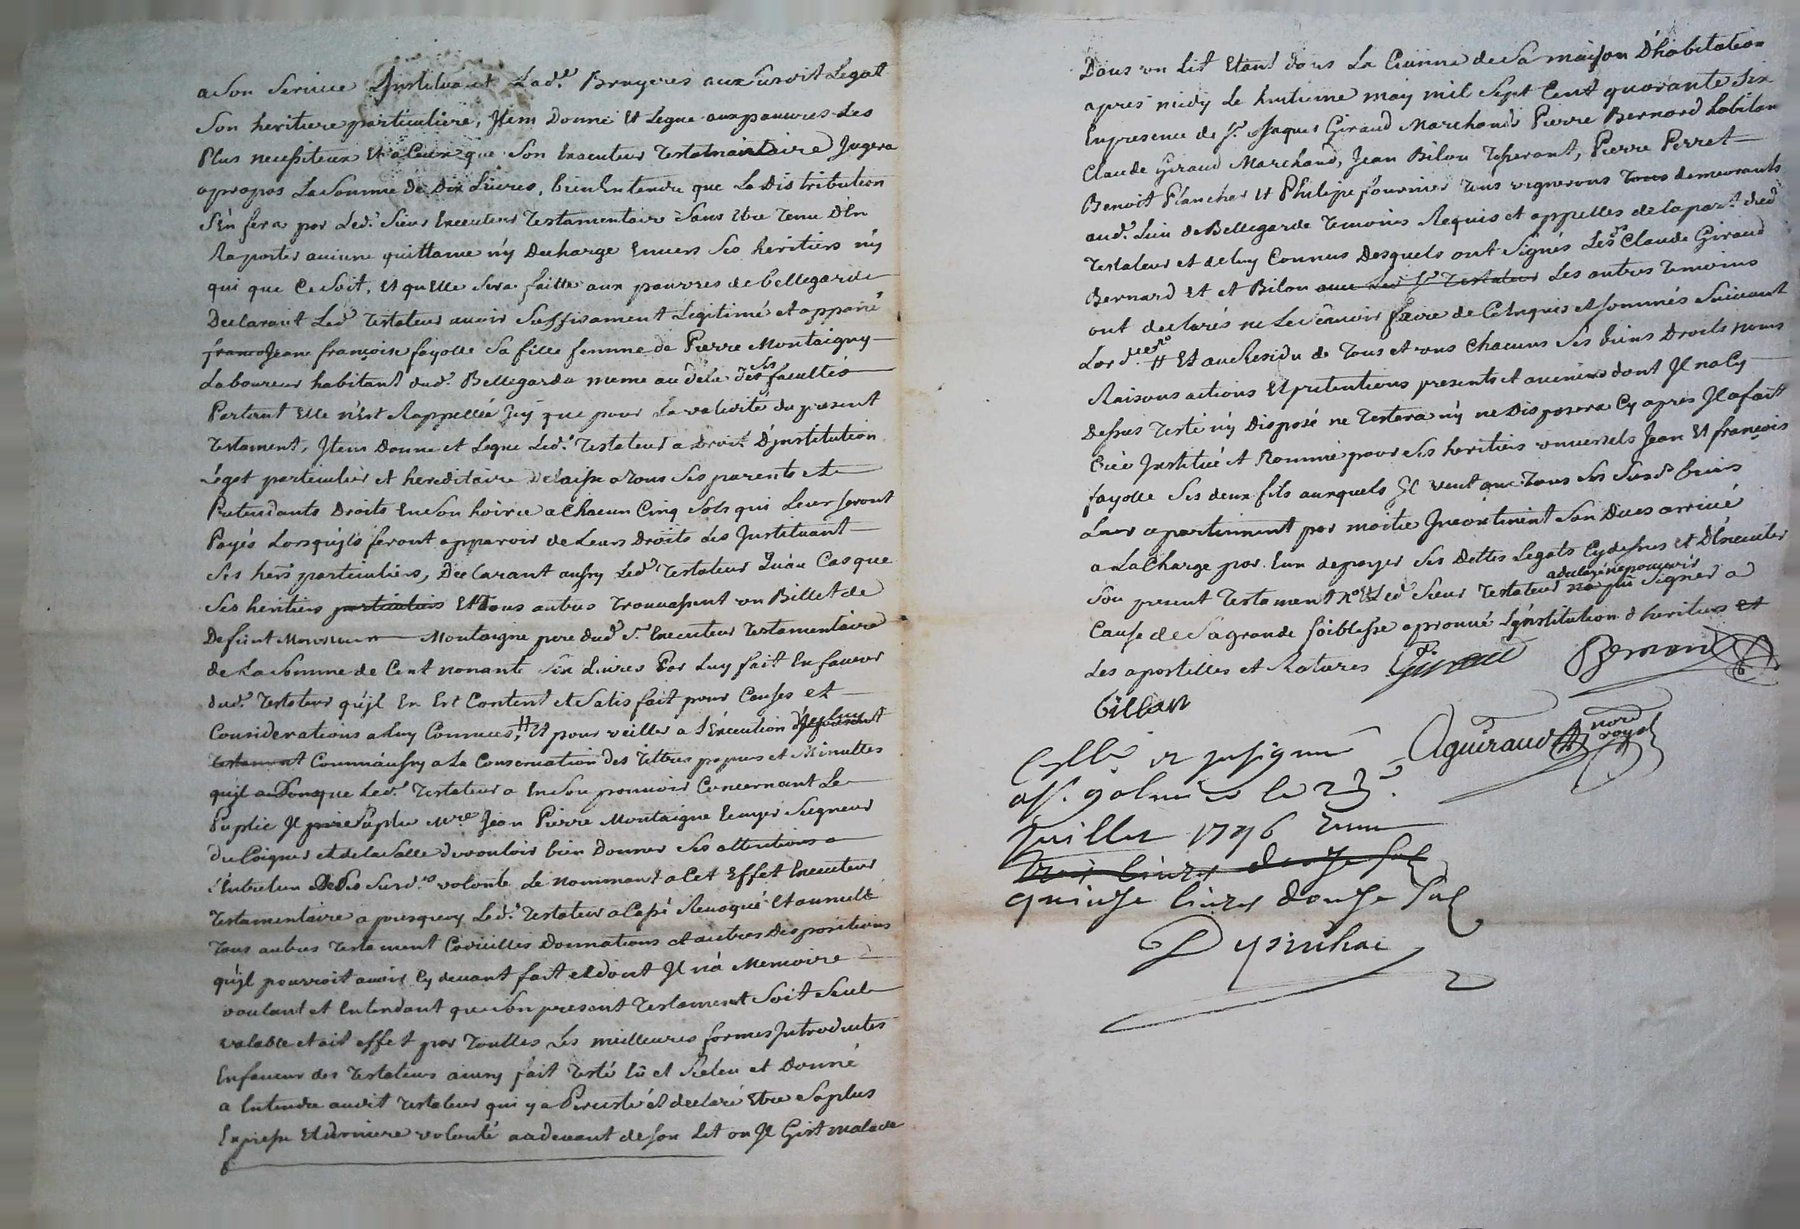 a Son Service Instituant Lad.e Bruyeres aux Susdit Legat
Son heritiere particuliere, Item Donne Et Legue aux pauvres Les
Plus necessiteux Et a Ceux que Son Executeur Testamentaire Jugera
apropos La Somme de Dix Livres, bien Entendu que La Distribution
S'En fera par Led. Sieur Executeur Testamentaire Sans Etre Tenu D'En
Raporter aucune quittance n'y Decharge Envers Ses heritiers n'y
qui que Ce Soit, Et qu'Elle Sera faitte aux pauvres de bellegarde
Declarant Led. Testateur avoir Suffisament Legitimé et apparié
Jeane françoise fayolle Sa fille femme de Pierre Montaigny
Laboureur habitant dud. Bellegarde meme au dela de Ses facultés
Partant Elle n'Est Rappellée Jcy que pour La validité du present
Testament, Item Donne et Legue Led. Testateur a Droit D'institution
Legat particulier et hereditaire Delaisse a Tous Ses parents et
Pretendants Droits En Son hoirie a Chacun Cinq Sols qui Leur Seront
Payés Lorsqu'ils feront apparoir de Leurs Droits Les Instituant
Ses hers particuliers, Declarant aussy Led. Testateur Qu'au Cas que
Ses heritiers particuliers Et Tous autres Trouvassent un Billet de
Defunt Monsieur Montaigne pere dud. Sr. Executeur Testamentaire
de La Somme de Cent nonante Six Livres Par Luy fait En faveur
dud. Testateur qu'il En Est Content et Satisfait pour Causes et
Considerations a Luy Connues, # Et pour veiller a L'Execution
testament Comm'aussy a La Conservation des Tittres papiers et Minuttes
que Led. Testateur a En Son pouvoir Concernant Le
Public Il prie Mre. Jean Pierre Montaigne Ecuyer Seigneur
du Poigner et de La Salle de vouloir bien Donner Ses attentions a
volonté Le nommant a Cet Effet Executeur
Testamentaire a pourquoy Led. Testateur a Cassé Revoqué Et annullé
Tous autres Testament Codicilles Donnations et autres Dispositions
qu'il pourroit avoir Cy devant fait et dont Il n'a Memoire
voulant et Entendant que Son present Testament Soit Seul
valable et ait effet par Touttes Les meilleures formes Introduites
En faveur des Testateurs ainsy fait Testé Lû et Relu et Donné
a Entendre audit Testateur qui y a Percisté et declaré Etre Sa plus
Expresse Et derniere volonté au devant de Son Lit ou Il Gist malade
Dans un Lit Etant dans La Cuisine de Sa maison D'habitation
apres midy Le huitieme may mil Sept Cent quarante Six
En presence de Sr. Jaques Giraud Marchand Pierre Bernard habitan
Claude Giraud Marchand, Jean Bilon Tisserant, Pierre Perret
Benoit Plancher Et Philipe fournier Tous vignerons Tous demeurants
aud. Lieu de Bellegarde Temoins Requis et appelles de La part dud
Testateur et de Luy Connus Desquels ont Signés Lesd. Claude Giraud
Bernard Et et Bilon avec Led Sr Testateur Les autres Temoins
ont declarés ne Le Sçavoir faire de Ce Enquis et Sommés Suivant
Lord.ce # Et au Residu de Tous et uns Chacuns Ses biens Droits noms
Raisons actions Et pretentions presents et avenirs dont Il na Cy
Dessus Testé n'y Disposé ne Testera n'y ne Disposera Cy apres Il a fait
Crée Institué et Nommé pour Ses heritiers universels Jean Et françois
fayolle Ses deux fils auxquels Il veut que Tous Ses Susd. biens
Leur apartiennent par moitié Incontinent Son Deces arrivé
a La Charge par Eux de payer Ses Dettes Legats Cy dessus et D'Executer
Son present Testament Led. Sieur Testateur Signer a
Cause de Sa grande foiblesse aprouvé L'institution d'heritiers et
Les apostilles et Ratures Giraud Bernard
billon
Aguiraud nore royal
Collé et Insigné
a St. galmier le 23.e
Juillet 1746 Reçu
trois livres douze Sols
quinze livres douze Sols